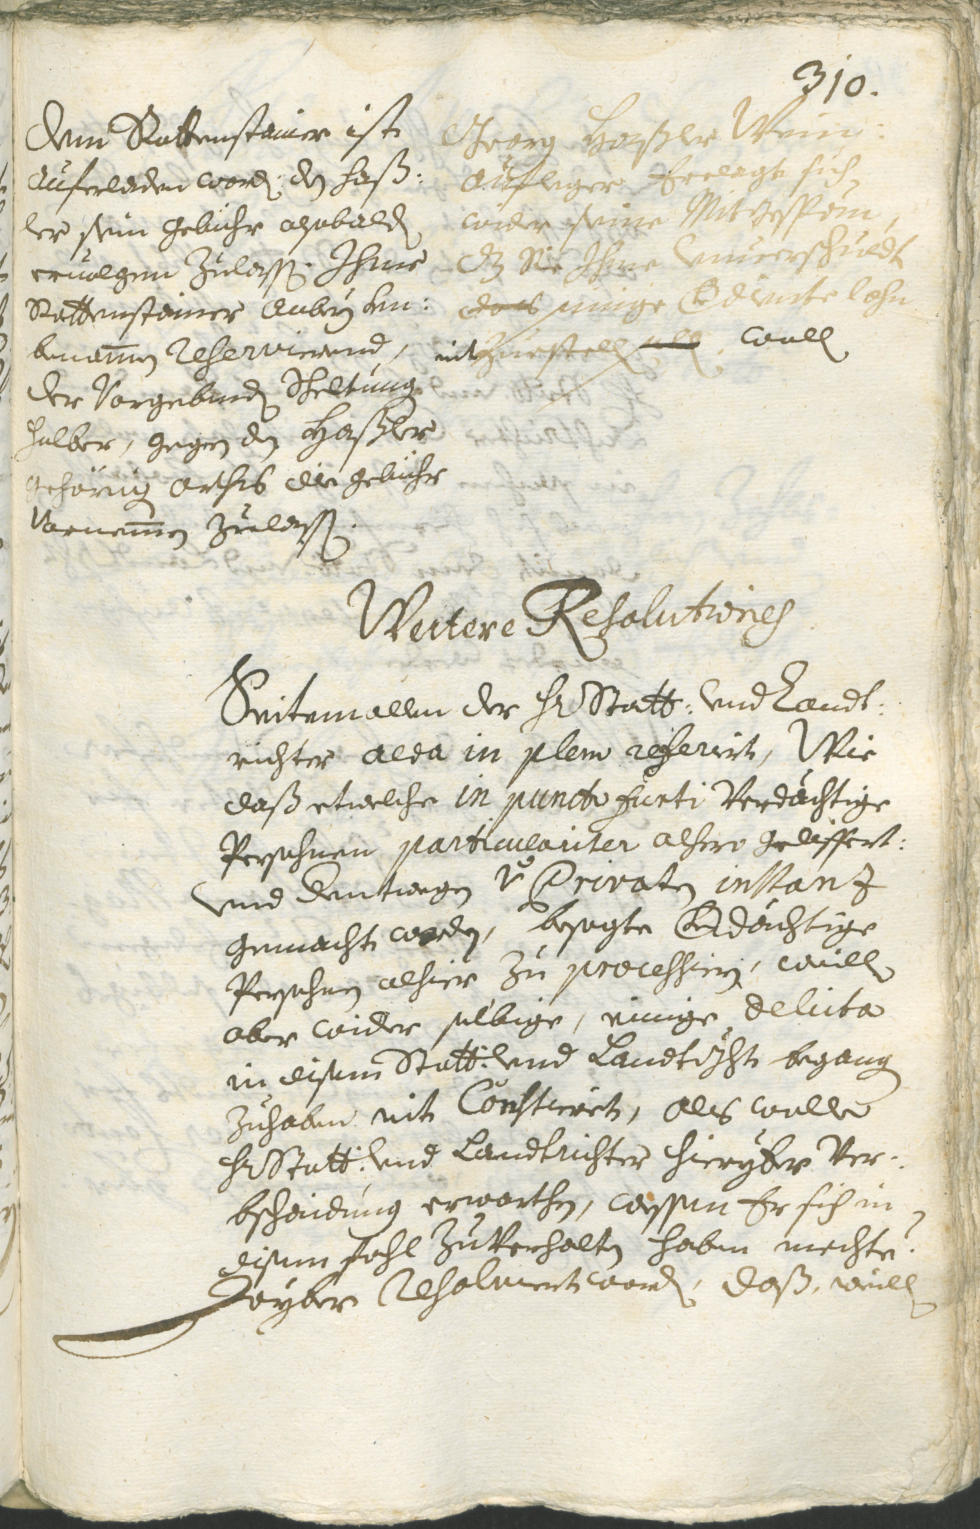 310.
Dem Rottenstainer ist
Auferladen word: den Haß:
ler sein gebühr alsobaldt
ervolgen Zulassen. Ihme
Rottenstainer Anbey be:
benamen Reservirend,
der Vorgebend Scheltung
halber, gegen den Haßler
gehörig orths die gebühr
Vornemen Zulassen.
Georg Haßler Wein:
Aufleger beclagt sich
wider seine Mitgespän,
dz Sie Ihme unverschuldt
das einige Verdiente lohn
nit Zuestell woll
Weitere Resolutiones
Seitemallen der Hr Statt: und Landt:
richter alda in pleno referirt, Wie
daß etwelche in puncto furti Verdächtige
Persohnen particulariter alhero geliffert:
und dentwegen Privaten instanz
gemacht worden, besagte Verdächtige
Persohnen alhier Zu processiern, weill
aber wider selbige, einige delicta
in disem Statt: und Landtgericht begang
Zuhaben nit Constiert, als wolle
Hr Statt: und Landtrichter hieryber Ver:
bschaidung erwarthen, wessen Er sich in
disem fahl Zu Verhalten haben mechte.
Hieryber Resolviert word, daß, weill